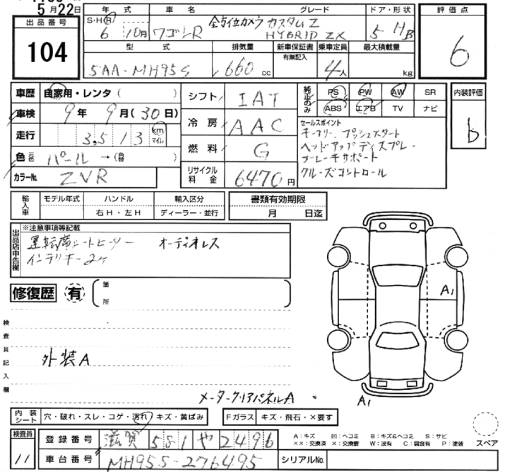 5月22日
出品番号
104
年式 車名 グレード ドア・形状 評価点
S・H・R 6年 10月 ワゴンR 全方位カメラ カスタムZ HYBRID ZX 5 HB
6
型式 排気量 新車保証書 有無記入 乗車定員 最大積載量
5AA-MH95S 660cc 4人 kg
車歴 自家用・レンタ( )
車検 9年 9月(30日)
走行 3,513 km マイル
色 パール→( )
カラーNo. ZVR
シフト IAT
冷房 AAC
燃料 G
リサイクル料金 6470円
純正のみ PS PW AW SR
ABS エアB TV ナビ
セールスポイント
キーフリー プッシュスタート
ヘッドアップディスプレー
ブレーキサポート
クルーズコントロール
内装評価
b
輸入車 モデル年式 ハンドル 輸入区分 書類有効期限
右H・左H ディーラー・並行 月 日迄
出品店申告欄
※注意事項等記載
運転席シートヒーター オーディオレス
インテリキー2ケ
修復歴 有 箇所
検査員記入欄
外装A
メータークリアパネルA
A1
A1
内装シート 穴・破れ・スレ・コゲ・汚れ・キズ・黄ばみ Fガラス キズ・飛石・×要す
スペア
検査員 11
登録番号 滋賀 581 や 2496
車台番号 MH95S-276495
シリアルNo.
A:キズ B:キズ&ヘコミ S:サビ
××:交換済 ×:要交換 W:波 C:腐食有 P:塗装